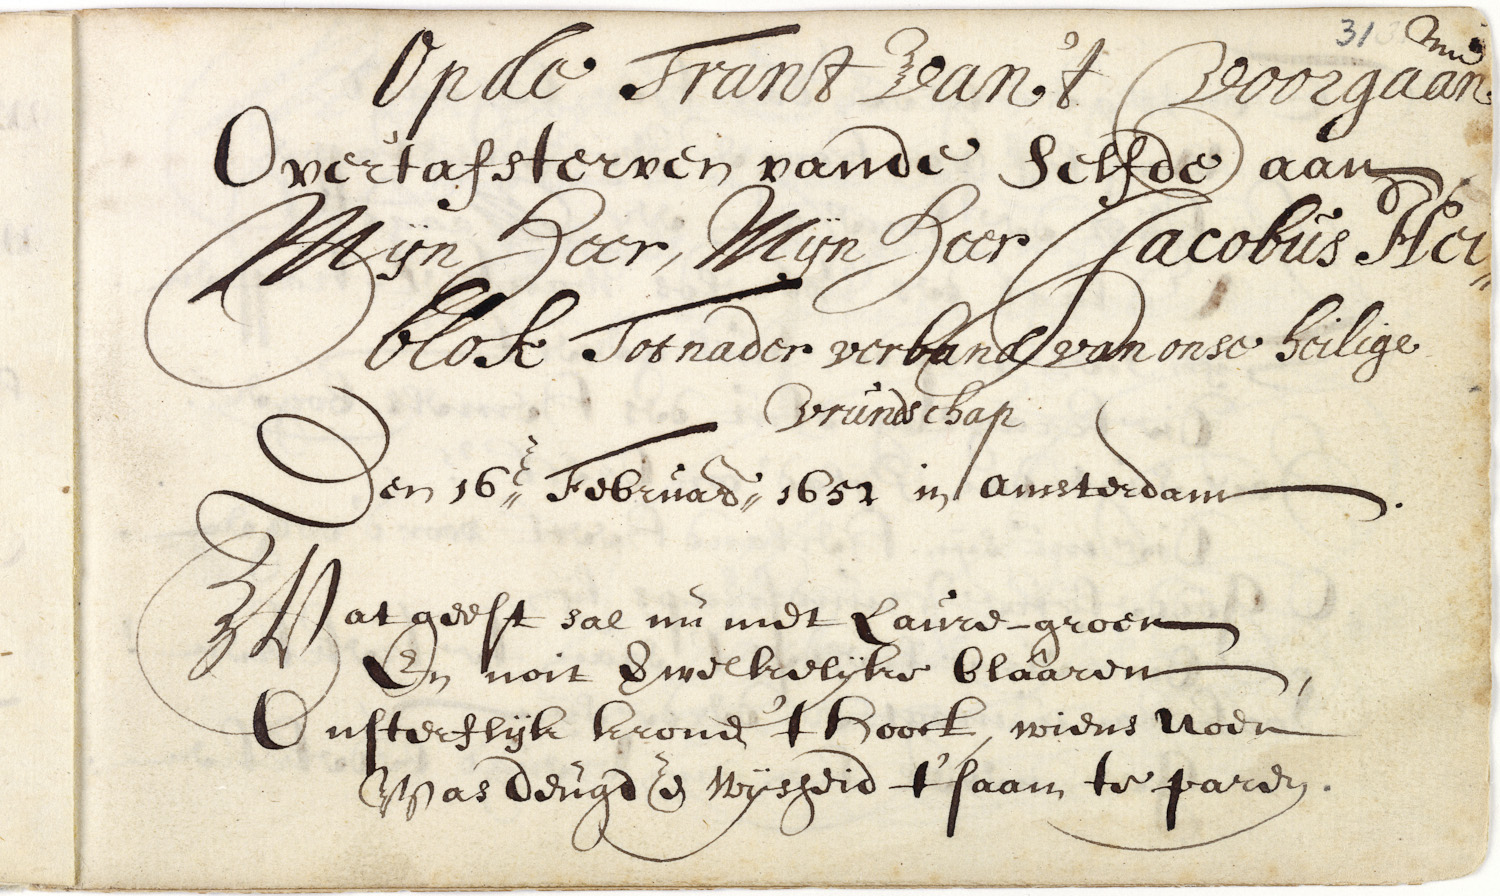 31
Op de Trant van't voorgaan
Over't afsterven vande Selfde aan
Mÿn Heer, Mÿn Heer Jacobus Hei„
blok Tot nader verband van onse heilige
vrundschap
Den 16„ Februar„ 1652 in Amsterdam.
Wat geest sal nu met Laure-groen
En noit verwelkelÿke blaâren,
Onsterflÿk krone 't Hooft, wiens noen
Was deugd en Wÿsheid t'saam te paren.